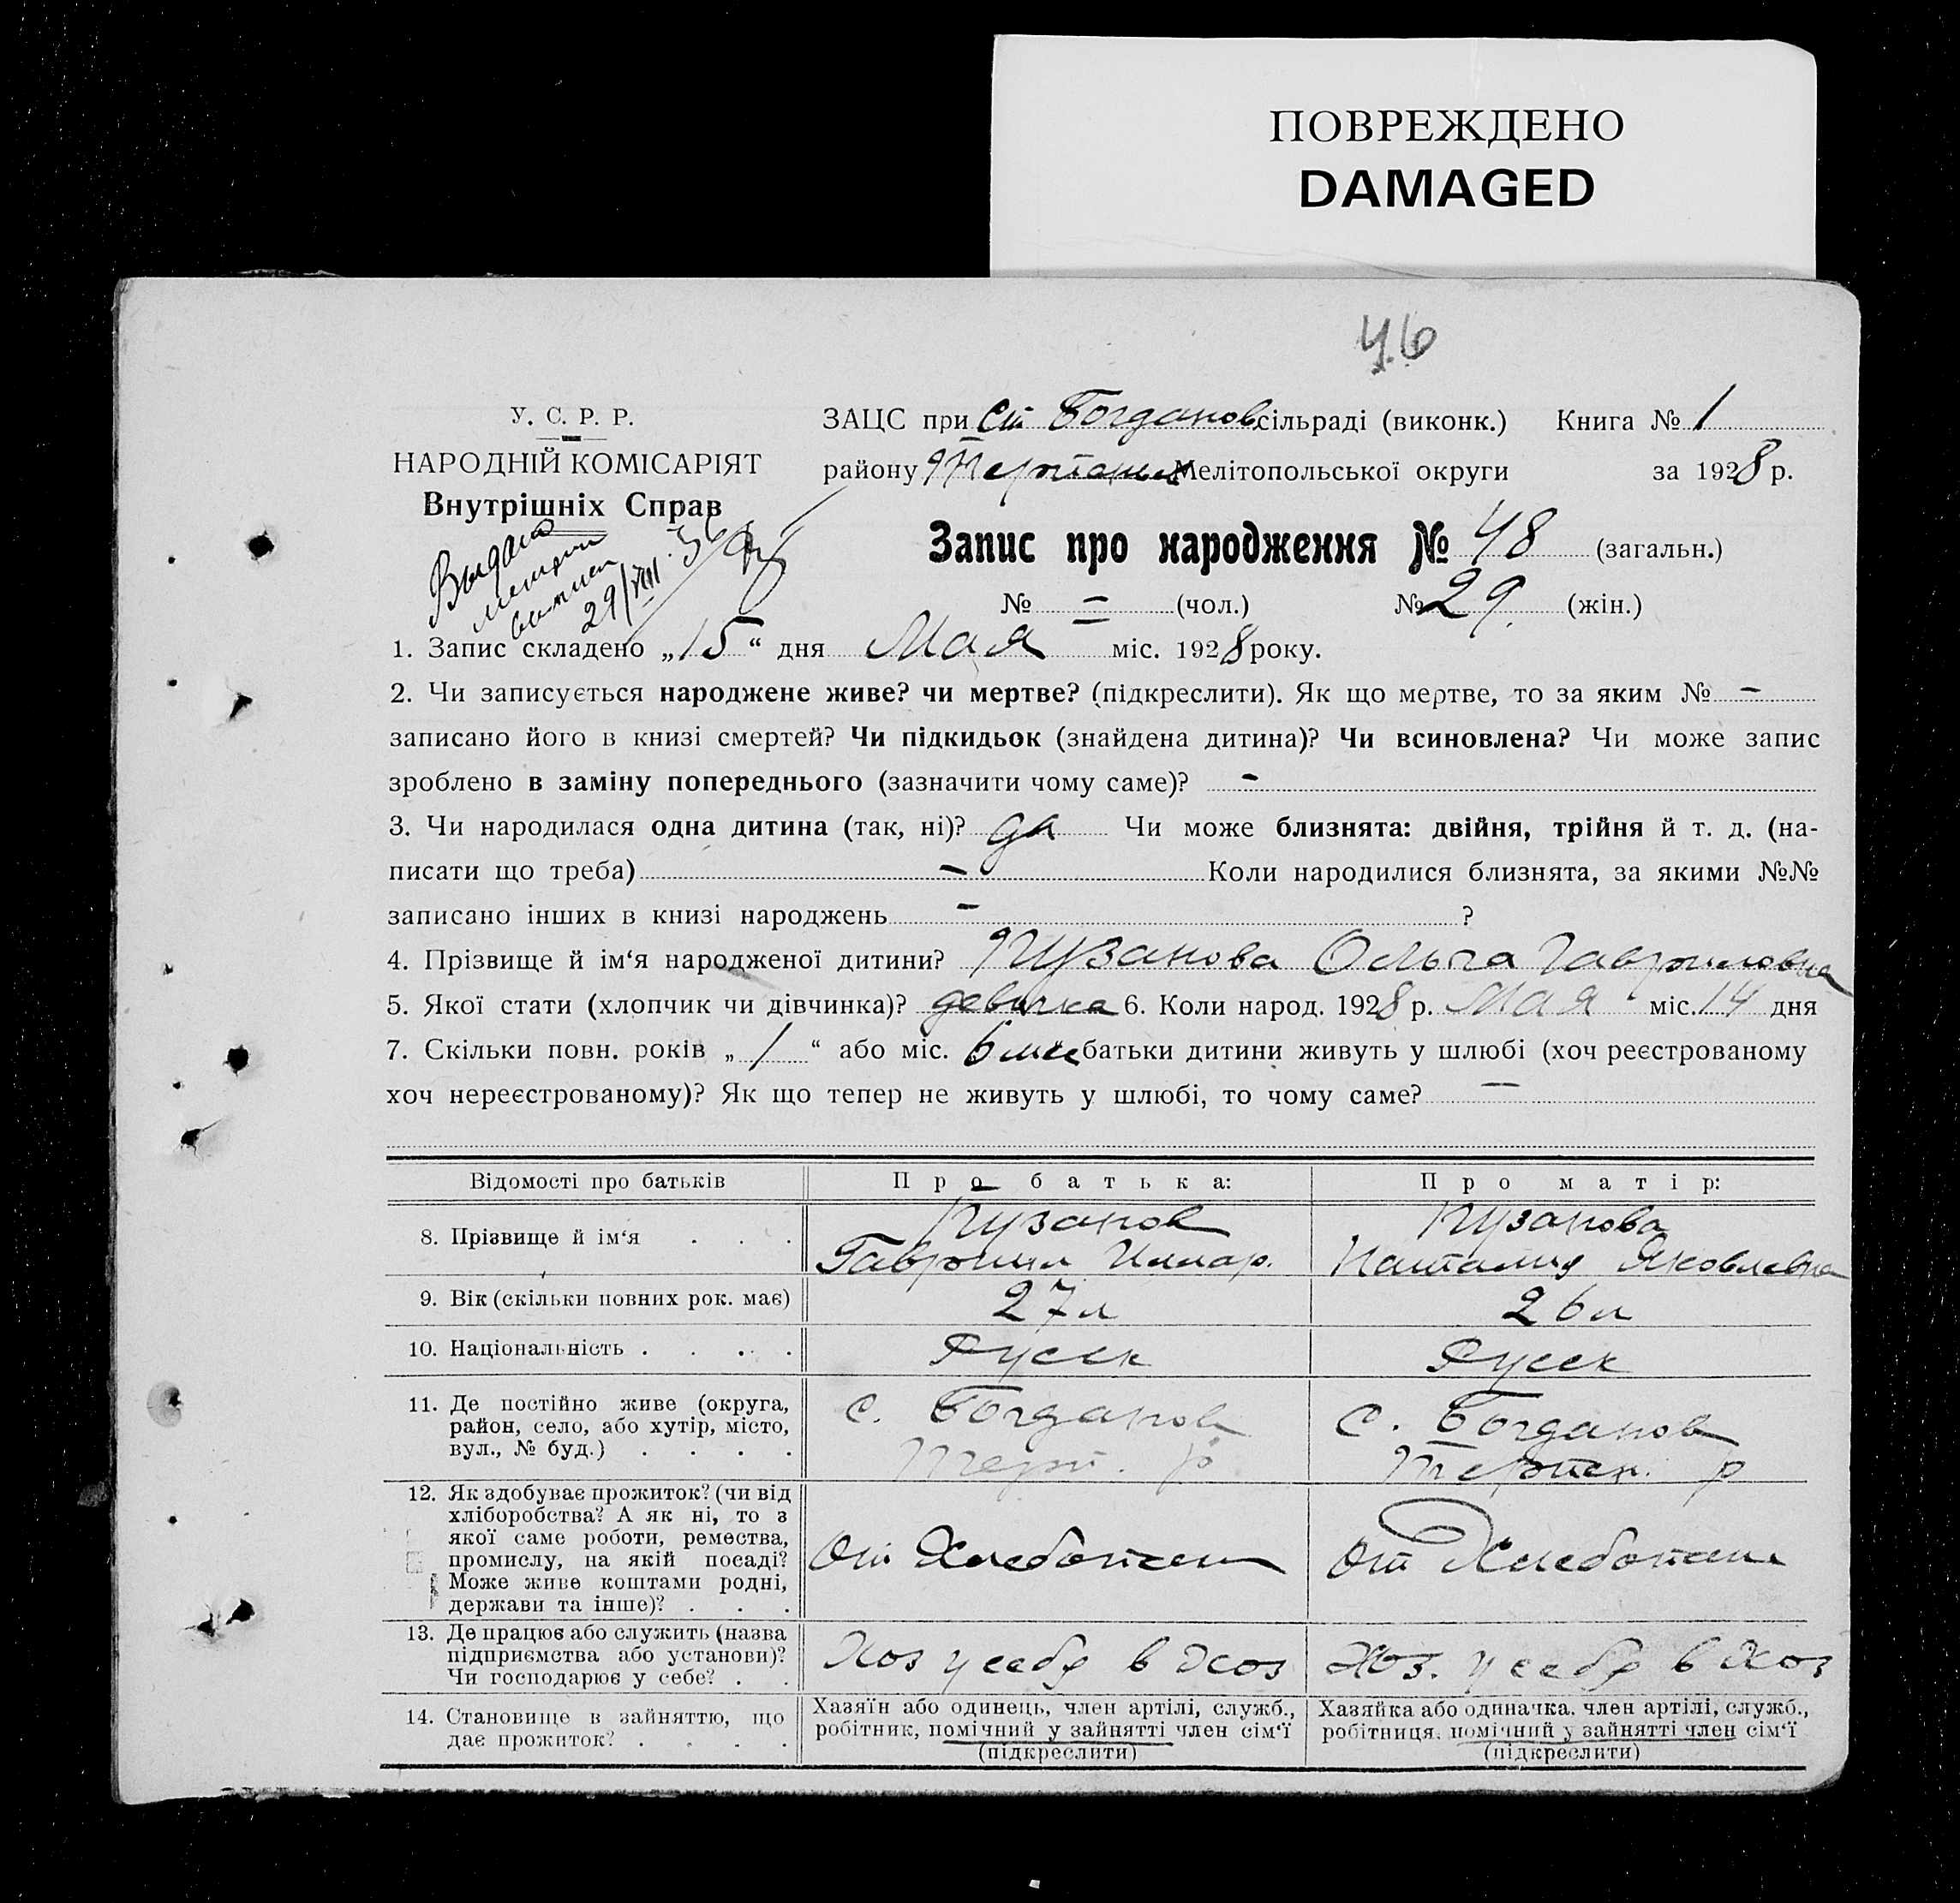 ПОВРЕЖДЕНО
DAMAGED
46
У. С. Р. Р.
НАРОДНІЙ КОМІСАРІЯТ
Внутрішніх Справ
Выдана
метрич
выписи
29/VIII 36
ЗАЦС при Ст Богданов сільраді (виконк.) Книга № 1
району Мелітопольської округи за 1928 р.
Запис про народження № 48 (загальн.)
№ — (чол.) № 29. (жін.)
1. Запис складено „15“ дня Мая міс. 1928 року.
2. Чи записується народжене живе? чи мертве? (підкреслити). Як що мертве, то за яким № —
записано його в книзі смертей? Чи підкидьок (знайдена дитина)? Чи всиновлена? Чи може запис
зроблено в заміну попереднього (зазначити чому саме)? —
3. Чи народилася одна дитина (так, ні)? да Чи може близнята: двійня, трійня й т. д. (на-
писати що треба) — Коли народилися близнята, за якими №№
записано інших в книзі народжень — ?
4. Прізвище й ім‘я народженої дитини? Пузанова Ольга Гавриловна
5. Якої стати (хлопчик чи дівчинка)? девочка 6. Коли народ. 1928 р. Мая міс. 14 дня
7. Скільки повн. років „1“ або міс. 6 мес батьки дитини живуть у шлюбі (хоч реєстрованому
хоч нереєстрованому)? Як що тепер не живуть у шлюбі, то чому саме? —
Відомості про батьків Про батька: Про матір:
8. Прізвище й ім‘я . . . Пузанов Гавриил Иллар. Пузанова Наталия Яковлевна
9. Вік (скільки повних рок. має) 27 л 26 л
10. Національність . . . . Русск Русск
11. Де постійно живе (округа,
район, село, або хутір, місто,
вул., № буд.) . . . .
с. Богданов
Терп. р
с. Богданов
Терпен. р
12. Як здобуває прожиток? (чи від
хліборобства? А як ні, то з
якої саме роботи, ремества,
промислу, на якій посаді?
Може живе коштами родні,
держави та інше)? . . .
От Хлебопаш
От Хлебопаш
13. Де працює або служить (назва
підприємства або установи)?
Чи господарює у себе? . .
Хоз у себя в Хоз
Хоз. у себя в Хоз
14. Становище в зайняттю, що
дає прожиток? . . . .
Хазяїн або одинець, член артілі, служб.,
робітник, помічний у зайнятті член сім‘ї
(підкреслити)
Хазяйка або одиначка. член артілі, служб.,
робітниця. помічний у зайнятті член сім‘ї
(підкреслити)